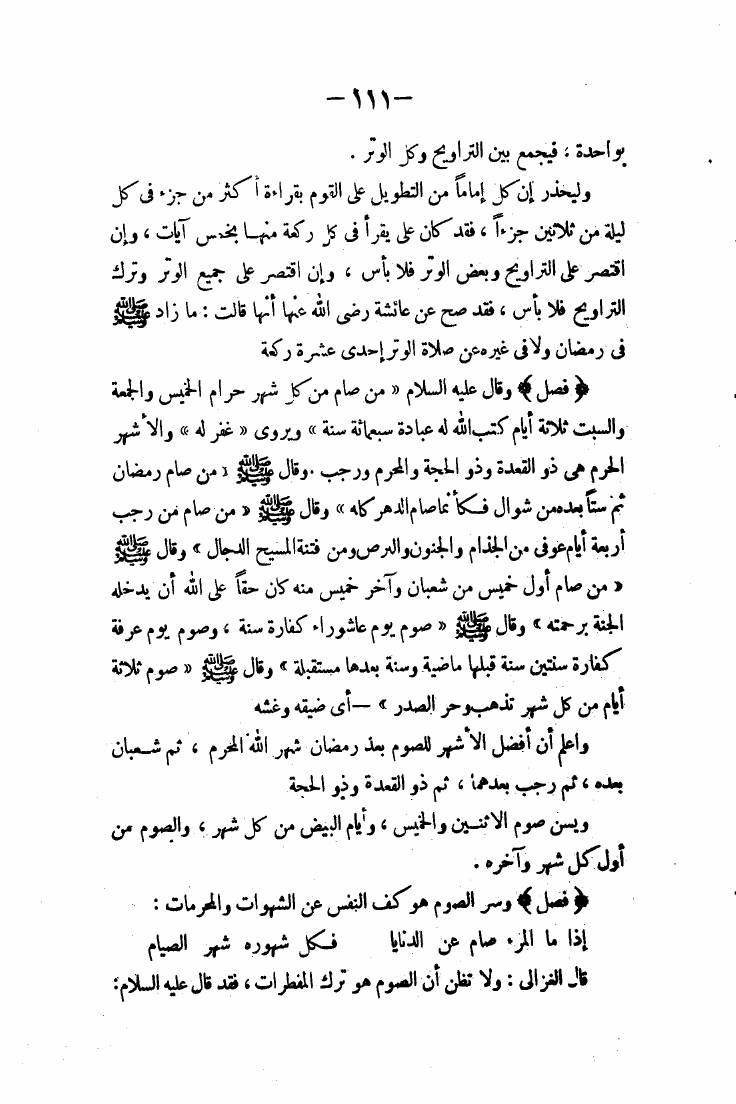 — ١١١ —
بواحدة ، فيجمع بين التراويح وكل الوتر .
وليحذر إن كان إماماً من التطويل على القوم بقراءة أكثر من جزء فى كل
ليلة من ثلاثين جزءاً ، فقد كان على يقرأ فى كل ركعة منهـا بخمس آيات ، وإن
اقتصر على التراويح وبعض الوتر فلا بأس ، وإن اقتصر على جميع الوتر وترك
التراويح فلا بأس ، فقد صح عن عائشة رضى الله عنها أنها قالت : ما زاد ﷺ
فى رمضان ولا فى غيره عن صلاة الوتر إحدى عشرة ركعة
﴿ فصل ﴾ وقال عليه السلام « من صام من كل شهر حرام الخميس والجمعة
والسبت ثلاثة أيام كتب الله له عبادة سبعمائة سنة » ويروى « غفر له » والأشهر
الحرم هى ذو القعدة وذو الحجة والمحرم ورجب . وقال ﷺ « من صام رمضان
ثم ستاً بعده من شوال فـكأنما صام الدهر كله » وقال ﷺ « من صام من رجب
أربعة أيام عوفى من الجذام والجنون والبرص ومن فتنة المسيح الدجال » وقال ﷺ
« من صام أول خميس من شعبان وآخر خميس منه كان حقاً على الله أن يدخله
الجنة برحمته » وقال ﷺ « صوم يوم عاشوراء كفارة سنة ، وصوم يوم عرفة
كفارة سنتين سنة قبلها ماضية وسنة بعدها مستقبلة » وقال ﷺ « صوم ثلاثة
أيام من كل شهر تذهب وحر الصدر » — أى ضيقه وغشه
واعلم أن أفضل الأشهر للصوم بعد رمضان شهر الله المحرم ، ثم شـعبان
بعده ، ثم رجب بعدهما ، ثم ذو القعدة وذو الحجة
ويسن صوم الاثنـين والخميس ، وأيام البيض من كل شهر ، والصوم من
أول كل شهر وآخره .
﴿ فصل ﴾ وسر الصوم هو كف النفس عن الشهوات والمحرمات :
إذا ما المرء صام عن الدنايا فـكل شهوره شهر الصيام
قال الغزالى : ولا تظن أن الصوم هو ترك المفطرات ، فقد قال عليه السلام :